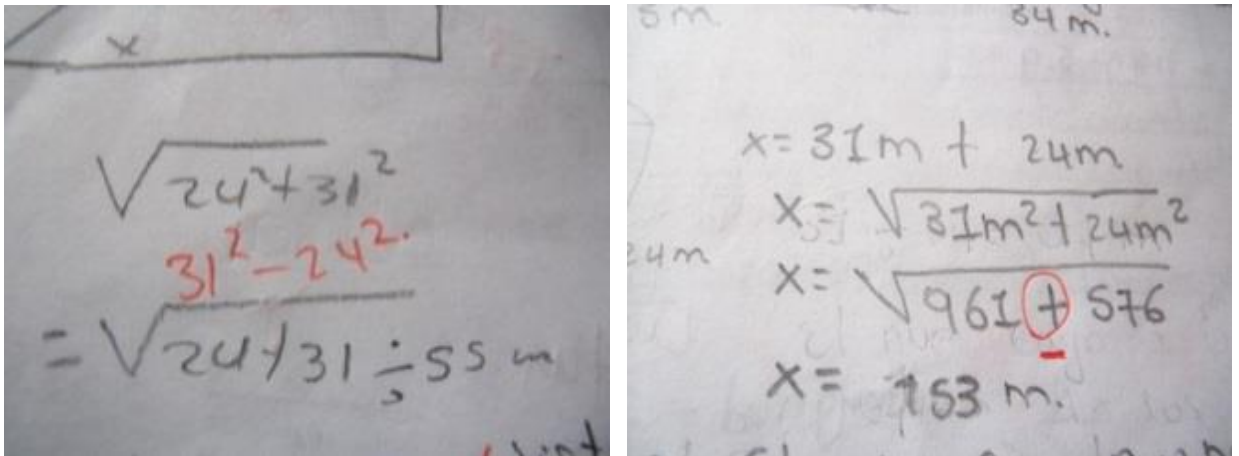 x
√24²+31²
31²-24².
= √24+31 ÷ 55 m
5m
34 m.
x= 31m + 24m
x= √31m²+24m²
24m
x= √961+576
x= 153 m.